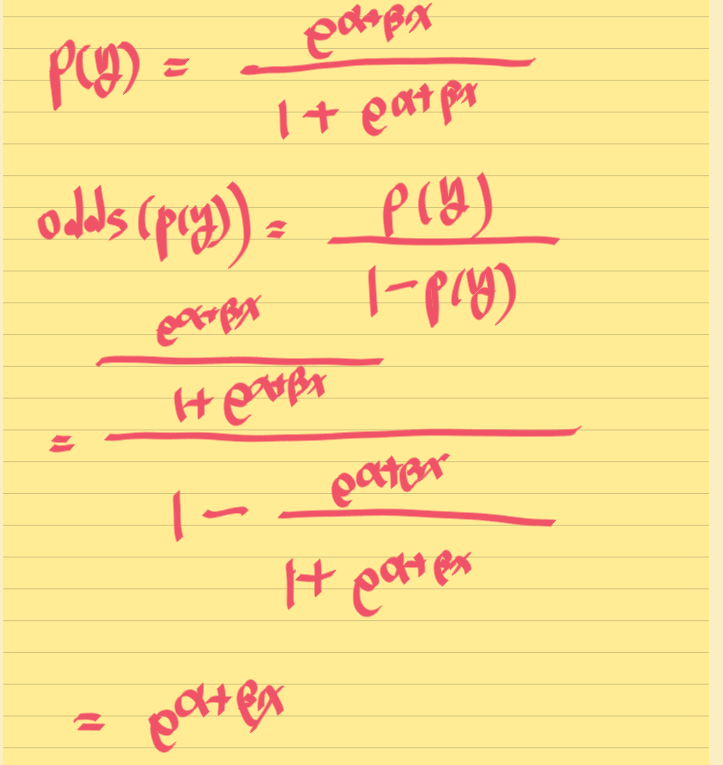 p(y) = e^{α+βx} / (1 + e^{α+βx})
odds(p(y)) = p(y) / (1 - p(y))
= (e^{α+βx} / (1 + e^{α+βx})) / (1 - e^{α+βx} / (1 + e^{α+βx}))
= e^{α+βx}